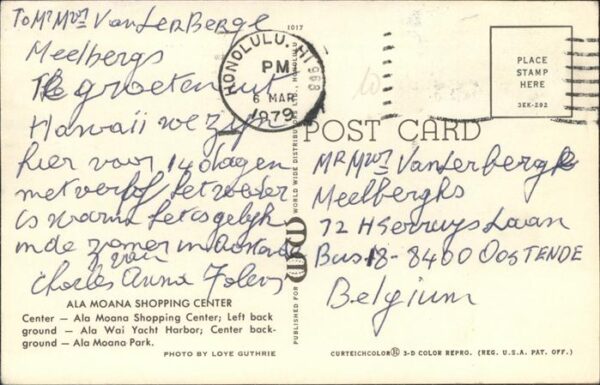 To Mr Mvrt VanderBerge
Meelbergs
De groeten uit
Hawaii we zijn
hier voor 14 dagen
met verlof het weder
is warm het is gelijk
in de zomer in
van
Charles Anna
ALA MOANA SHOPPING CENTER
Center — Ala Moana Shopping Center; Left back
ground — Ala Wai Yacht Harbor; Center back-
ground — Ala Moana Park.
PHOTO BY LOYE GUTHRIE
1017
HONOLULU, HI 968
PM
6 MAR
1979
PUBLISHED FOR WORLD WIDE DISTRIBUTORS LTD., HONOLULU
PLACE
STAMP
HERE
3EK-292
POST CARD
Mr Mvrt Vanderberghe
Meelberghs
72 H Serruys Laan
Bus 18 - 8400 OOSTENDE
Belgium
CURTEICHCOLOR® 3-D COLOR REPRO. (REG. U.S.A. PAT. OFF.)